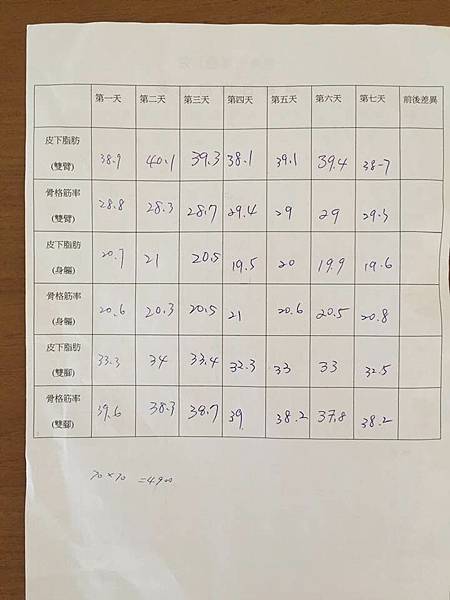 第一天 第二天 第三天 第四天 第五天 第六天 第七天 前後差異
皮下脂肪
(雙臂) 38.9 40.1 39.3 38.1 39.1 39.4 38.7
骨格筋率
(雙臂) 28.8 28.3 28.7 29.4 29 29 29.3
皮下脂肪
(身軀) 20.7 21 20.5 19.5 20 19.9 19.6
骨格筋率
(身軀) 20.6 20.3 20.5 21 20.6 20.5 20.8
皮下脂肪
(雙腳) 33.3 34 33.4 32.3 33 33 32.5
骨格筋率
(雙腳) 39.6 38.3 38.7 39 38.2 37.8 38.2
70×70 =4900